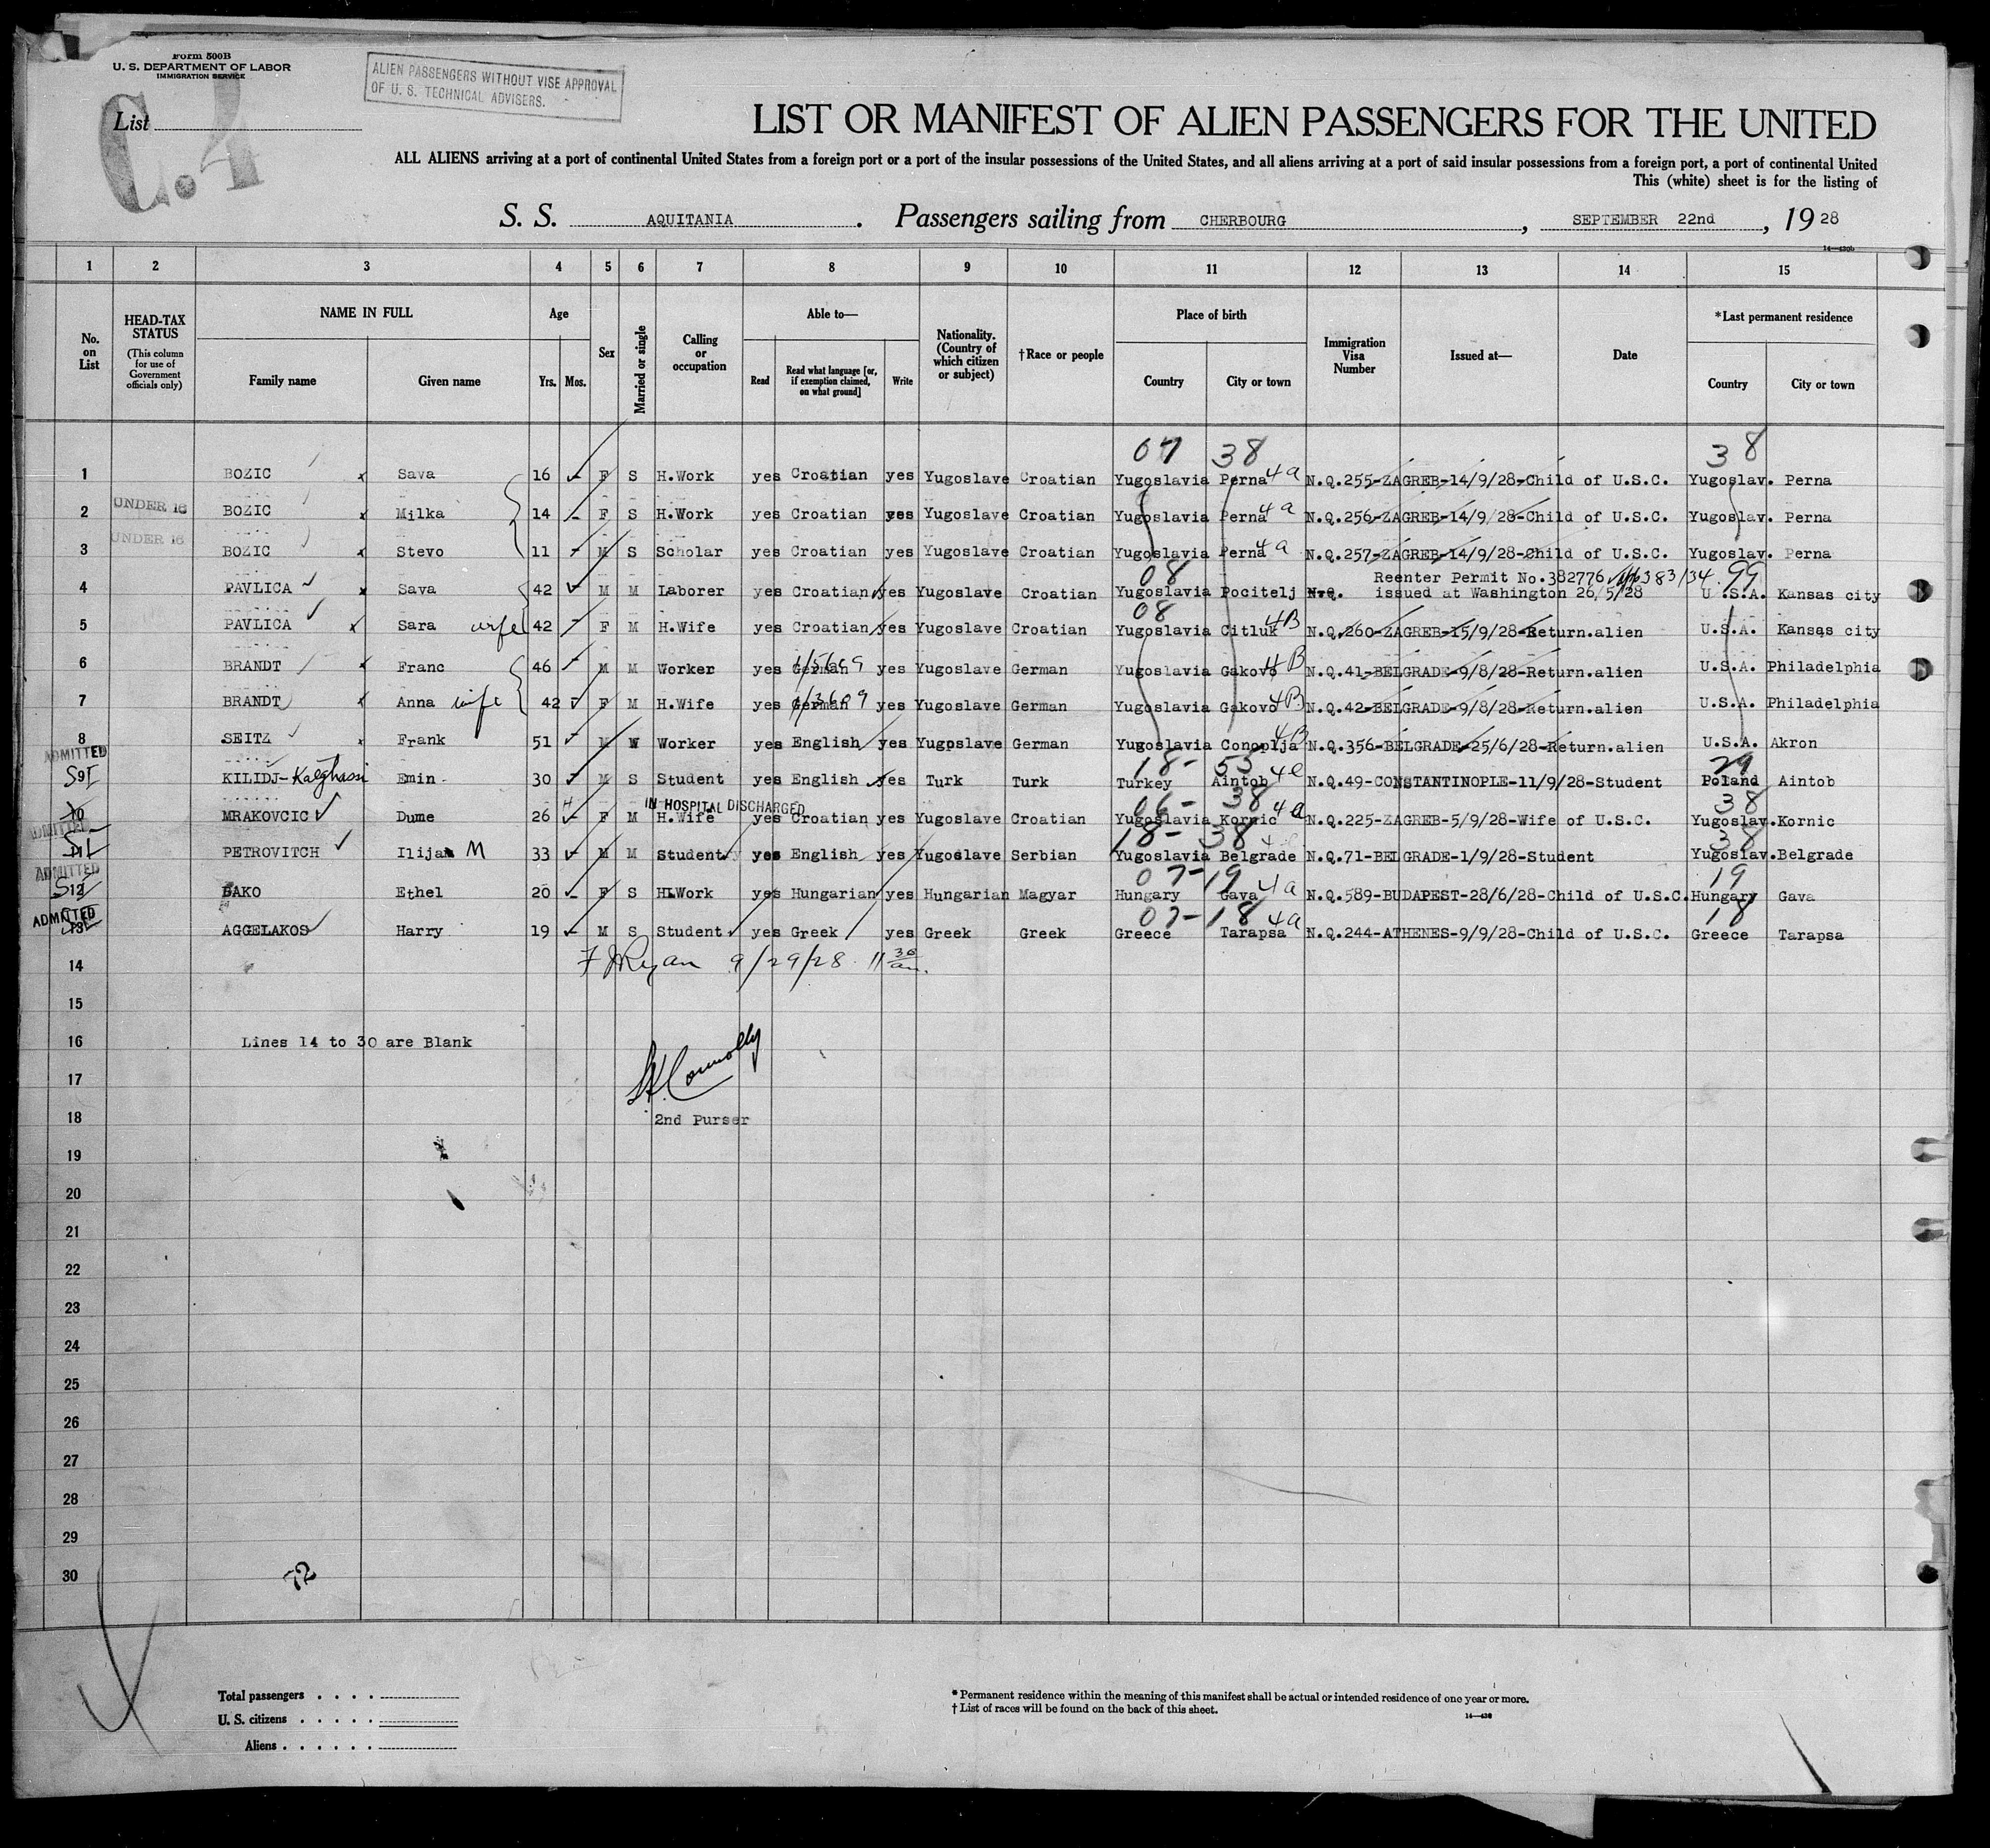 Form 500B
U. S. DEPARTMENT OF LABOR
IMMIGRATION SERVICE
ALIEN PASSENGERS WITHOUT VISE APPROVAL
OF U. S. TECHNICAL ADVISERS.
List
C.4
LIST OR MANIFEST OF ALIEN PASSENGERS FOR THE UNITED
ALL ALIENS arriving at a port of continental United States from a foreign port or a port of the insular possessions of the United States, and all aliens arriving at a port of said insular possessions from a foreign port, a port of continental United
This (white) sheet is for the listing of
S. S. AQUITANIA. Passengers sailing from CHERBOURG, SEPTEMBER 22nd, 1928
14—430b
1 2 3 4 5 6 7 8 9 10 11 12 13 14 15
No. on List
HEAD-TAX STATUS (This column for use of Government officials only)
NAME IN FULL Family name Given name
Age Yrs. Mos.
Sex
Married or single
Calling or occupation
Able to— Read Read what language [or, if exemption claimed, on what ground] Write
Nationality. (Country of which citizen or subject)
†Race or people
Place of birth Country City or town
Immigration Visa Number
Issued at—
Date
*Last permanent residence Country City or town
07 38 38
1 BOZIC x Sava 16 F S H.Work yes Croatian yes Yugoslave Croatian Yugoslavia Perna 4a N.Q.255-ZAGREB-14/9/28-Child of U.S.C. Yugoslav. Perna
UNDER 16
2 BOZIC x Milka 14 F S H.Work yes Croatian yes Yugoslave Croatian Yugoslavia Perna 4a N.Q.256-ZAGREB-14/9/28-Child of U.S.C. Yugoslav. Perna
UNDER 16
3 BOZIC x Stevo 11 M S Scholar yes Croatian yes Yugoslave Croatian Yugoslavia Perna 4a N.Q.257-ZAGREB-14/9/28-Child of U.S.C. Yugoslav. Perna
08 Reenter Permit No.382776 99
4 PAVLICA x Sava 42 M M Laborer yes Croatian yes Yugoslave Croatian Yugoslavia Pocitelj N.Q. issued at Washington 26/5/28 U.S.A. Kansas city
08
5 PAVLICA x Sara wife 42 F M H.Wife yes Croatian yes Yugoslave Croatian Yugoslavia Citluk 4B N.Q.260-ZAGREB-15/9/28-Return.alien U.S.A. Kansas city
6 BRANDT x Franc 46 M M Worker yes German yes Yugoslave German Yugoslavia Gakovo 4B N.Q.41-BELGRADE-9/8/28-Return.alien U.S.A. Philadelphia
7 BRANDT x Anna wife 42 F M H.Wife yes German yes Yugoslave German Yugoslavia Gakovo 4B N.Q.42-BELGRADE-9/8/28-Return.alien U.S.A. Philadelphia
8 SEITZ x Frank 51 M W Worker yes English yes Yugoslave German Yugoslavia Conoplja 4B N.Q.356-BELGRADE-25/6/28-Return.alien U.S.A. Akron
ADMITTED 18- 53 29
9 KILIDJ-Kalghassi Emin 30 M S Student yes English yes Turk Turk Turkey Aintob 4e N.Q.49-CONSTANTINOPLE-11/9/28-Student Poland Aintob
IN HOSPITAL DISCHARGED 06- 38 38
10 MRAKOVCIC Dume 26 F M H.Wife yes Croatian yes Yugoslave Croatian Yugoslavia Kornic 4a N.Q.225-ZAGREB-5/9/28-Wife of U.S.C. Yugoslav. Kornic
ADMITTED 18- 38 38
11 PETROVITCH Ilija M 33 M M Student yes English yes Yugoslave Serbian Yugoslavia Belgrade N.Q.71-BELGRADE-1/9/28-Student Yugoslav. Belgrade
ADMITTED 07-19 19
12 BAKO Ethel 20 F S H.Work yes Hungarian yes Hungarian Magyar Hungary Gava 4a N.Q.589-BUDAPEST-28/6/28-Child of U.S.C. Hungary Gava
ADMITTED 07-18 18
13 AGGELAKOS Harry 19 M S Student yes Greek yes Greek Greek Greece Tarapsa 4a N.Q.244-ATHENES-9/9/28-Child of U.S.C. Greece Tarapsa
14 F J Ryan 9/29/28 11 30 am.
15
16 Lines 14 to 30 are Blank
Connolly
17
18 2nd Purser
19
20
21
22
23
24
25
26
27
28
29
30
72
Total passengers . . . .
U. S. citizens . . . . .
Aliens . . . . . .
* Permanent residence within the meaning of this manifest shall be actual or intended residence of one year or more.
† List of races will be found on the back of this sheet.
14—430